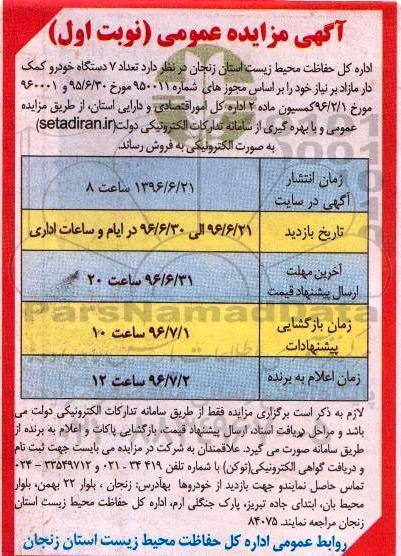 آگهی مزایده عمومی (نوبت اول)
اداره کل حفاظت محیط زیست استان زنجان در نظر دارد تعداد ۷ دستگاه خودرو کمک
دار مازاد بر نیاز خود را بر اساس مجوز های شماره ۹۵۰۰۱۱ مورخ ۹۵/۶/۳۰ و ۹۶۰۰۰۱
مورخ ۹۶/۲/۱ کمسیون ماده ۲ اداره کل امور اقتصادی و دارایی استان، از طریق مزایده
عمومی و با بهره گیری از سامانه تدارکات الکترونیکی دولت (setadiran.ir)
به صورت الکترونیکی به فروش رساند.
زمان انتشار آگهی در سایت ۱۳۹۶/۶/۲۱ ساعت ۸
تاریخ بازدید ۹۶/۶/۲۱ الی ۹۶/۶/۳۰ در ایام و ساعات اداری
آخرین مهلت ارسال پیشنهاد قیمت ۹۶/۶/۳۱ ساعت ۲۰
زمان بازگشایی پیشنهادات ۹۶/۷/۱ ساعت ۱۰
زمان اعلام به برنده ۹۶/۷/۲ ساعت ۱۲
ParsNamadData
لازم به ذکر است برگزاری مزایده فقط از طریق سامانه تدارکات الکترونیکی دولت می
باشد و مراحل دریافت اسناد، ارسال پیشنهاد قیمت، بازگشایی پاکات و اعلام به برنده از
طریق سامانه صورت می گیرد. علاقمندان به شرکت در مزایده می بایست جهت ثبت نام
و دریافت گواهی الکترونیکی (توکن) با شماره تلفن ۴۱۹ ۳۴ -۰۲۱ و ۳۳۵۴۹۷۱۲ - ۰۲۴
تماس حاصل نمایندو جهت بازدید از خودروها بهآدرس: زنجان ، بلوار ۲۲ بهمن، بلوار
محیط بان، ابتدای جاده تبریز، پارک جنگلی ارم، اداره کل حفاظت محیط زیست استان
زنجان مراجعه نمایند. ۸۴۰۷۵
روابط عمومی اداره کل حفاظت محیط زیست استان زنجان